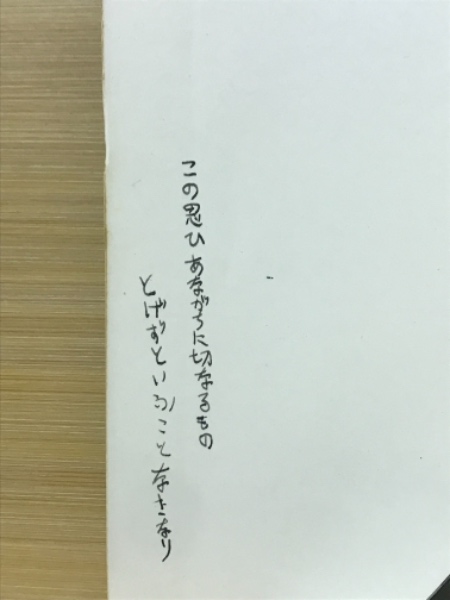 この思ひあながちに切なるもの
とげずといふことなきなり